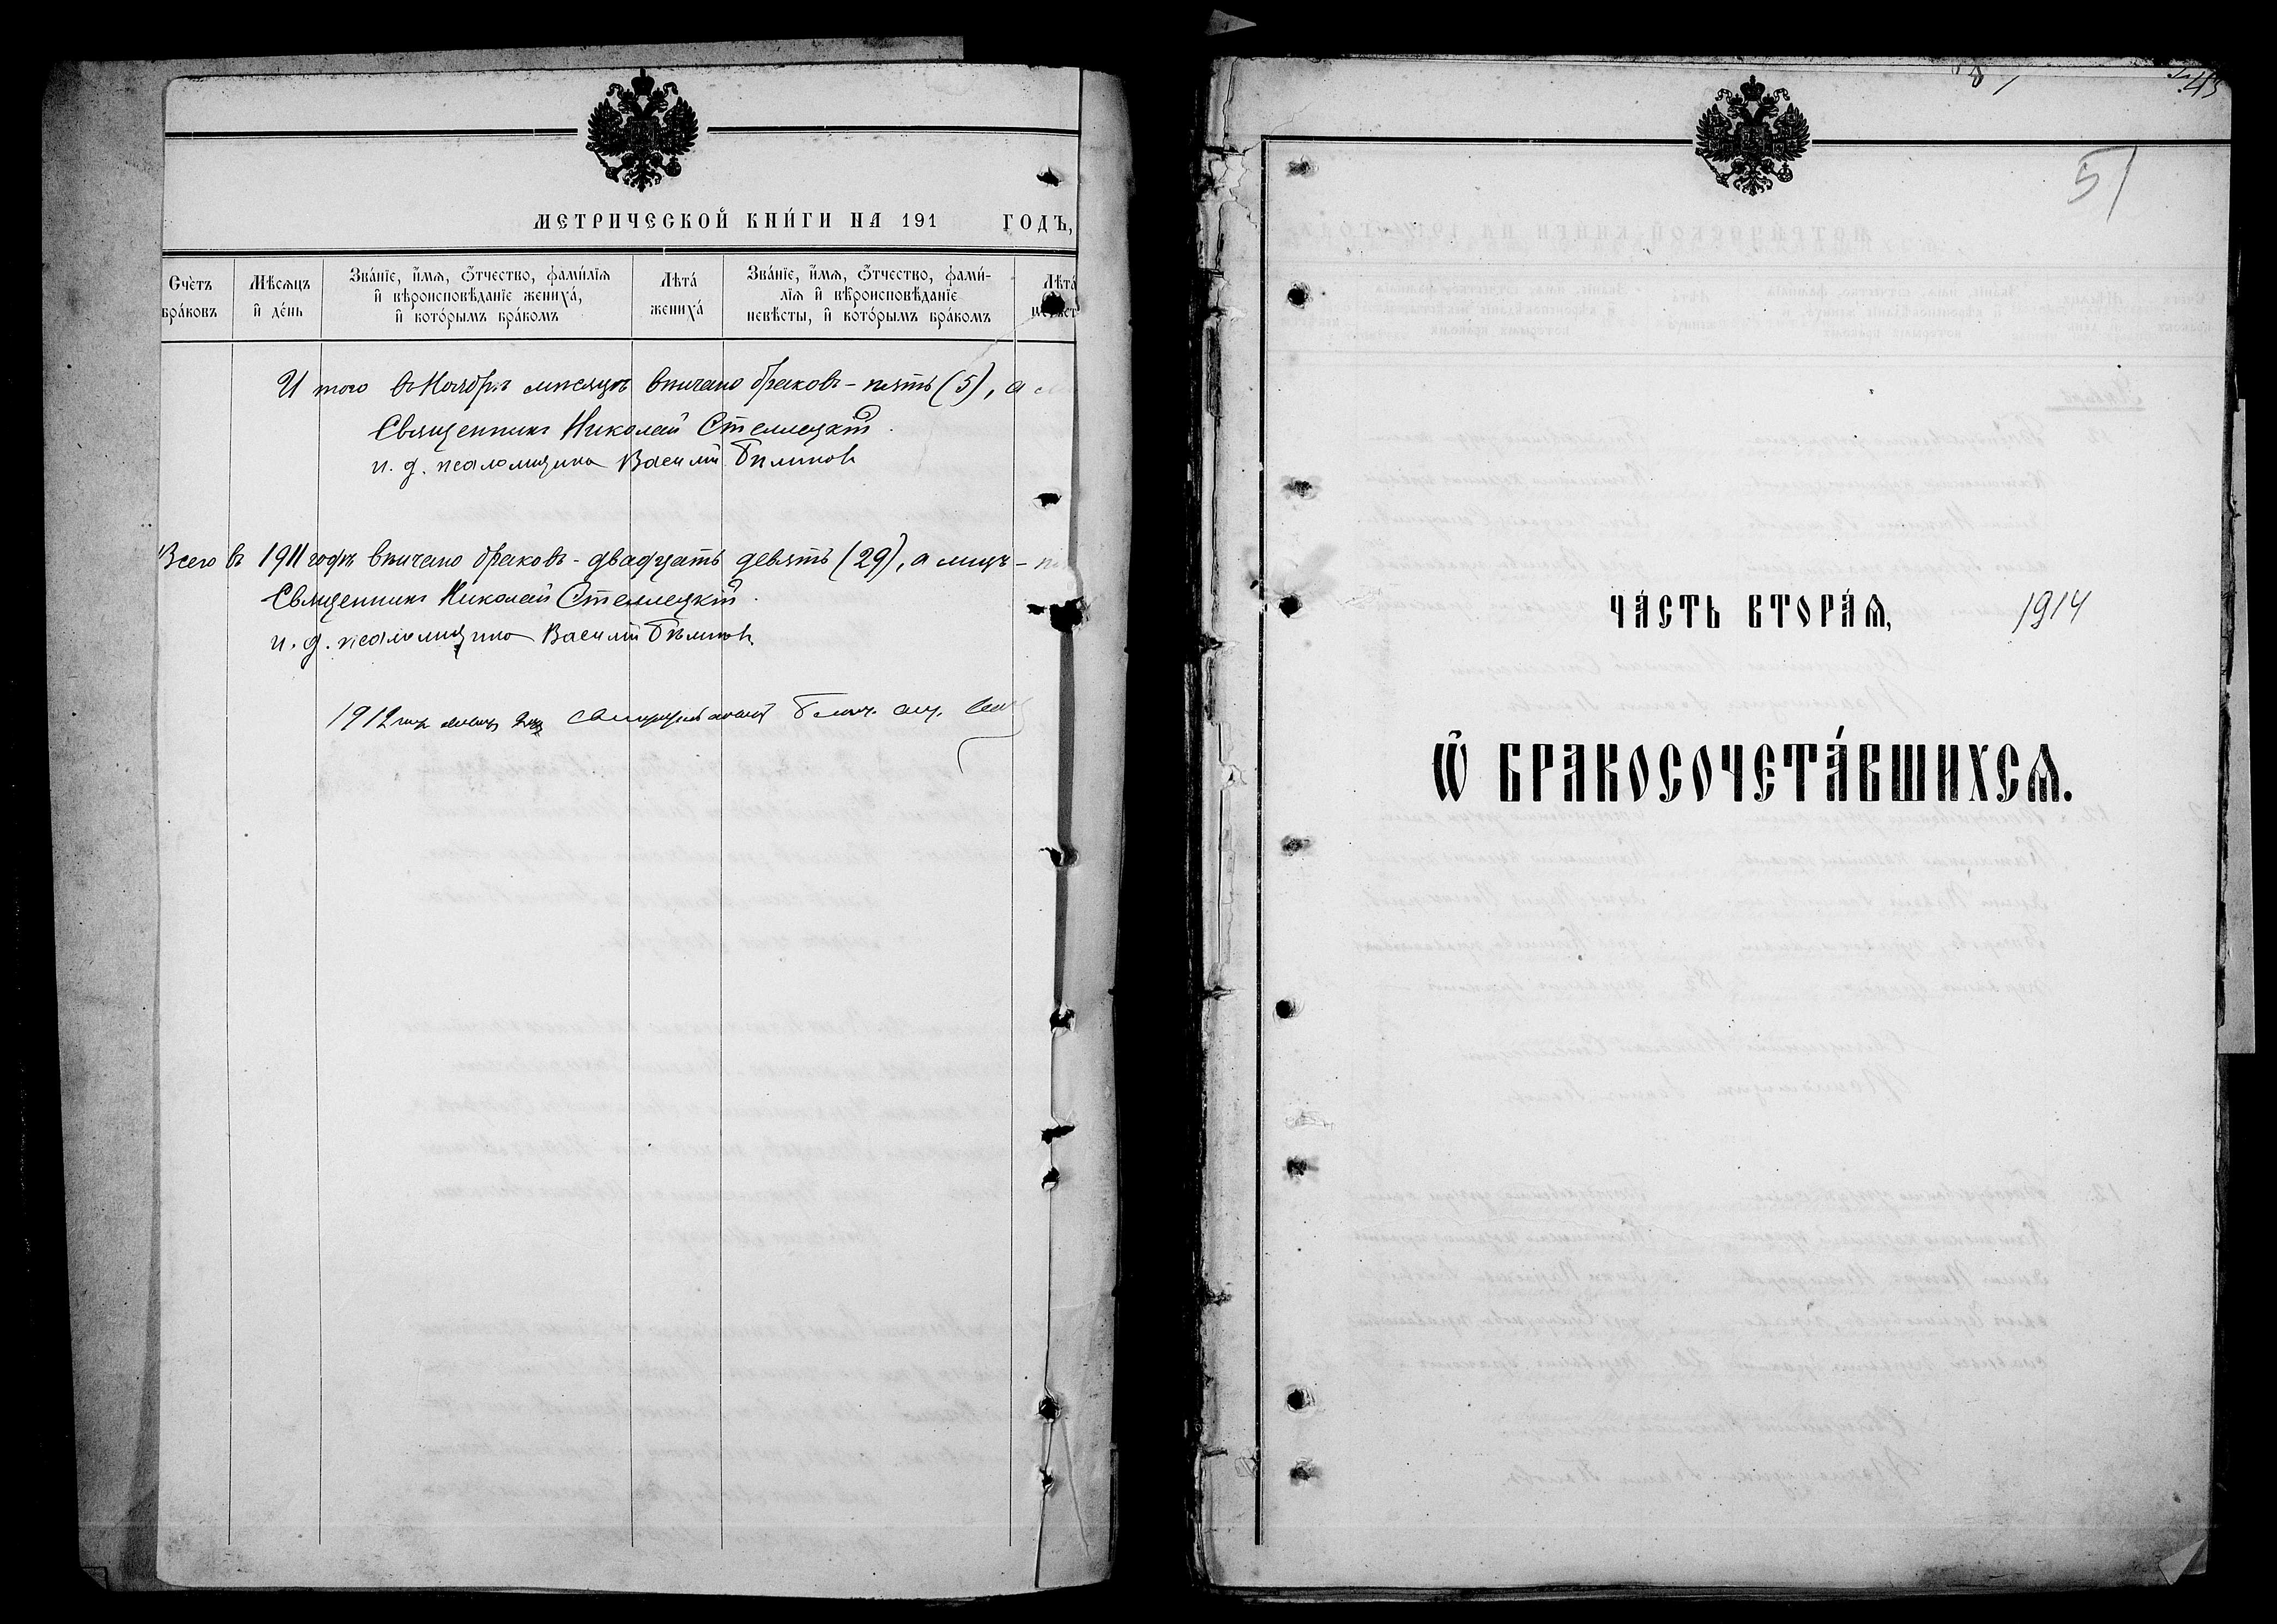 МЕТРИЧЕСКОЙ КНИ́ГИ НА 191 ГОДЪ,
Счетъ браковъ
Мѣсяцъ и҆ де́нь
Зва́нїе, и҆́мѧ, ѻ҆́тчество, фами́лїѧ и҆ вѣроисповѣ́данїе жениха́, и҆ кото́рымъ бра́комъ
Лѣта́ жениха́
Зва́нїе, и҆́мѧ, ѻ҆́тчество, фами́лїѧ и҆ вѣроисповѣ́данїе невѣ́сты, и҆ кото́рымъ бра́комъ
Лѣта́
Итого въ Ноябрѣ мѣсяцѣ вѣнчано браковъ - пять (5), а
Священникъ Николай Стеллецкій.
и. д. псаломщика Василій Бѣликовъ
Всего въ 1911 годѣ вѣнчано браковъ - двадцать девять (29), а лицъ -
Священникъ Николай Стеллецкій.
и. д. псаломщика Василій Бѣликовъ
1912
51
ЧА́СТЬ ВТОРА́Ѧ, 1914
Ѡ҆ БРАКОСОЧЕТА́ВШИХСѦ.